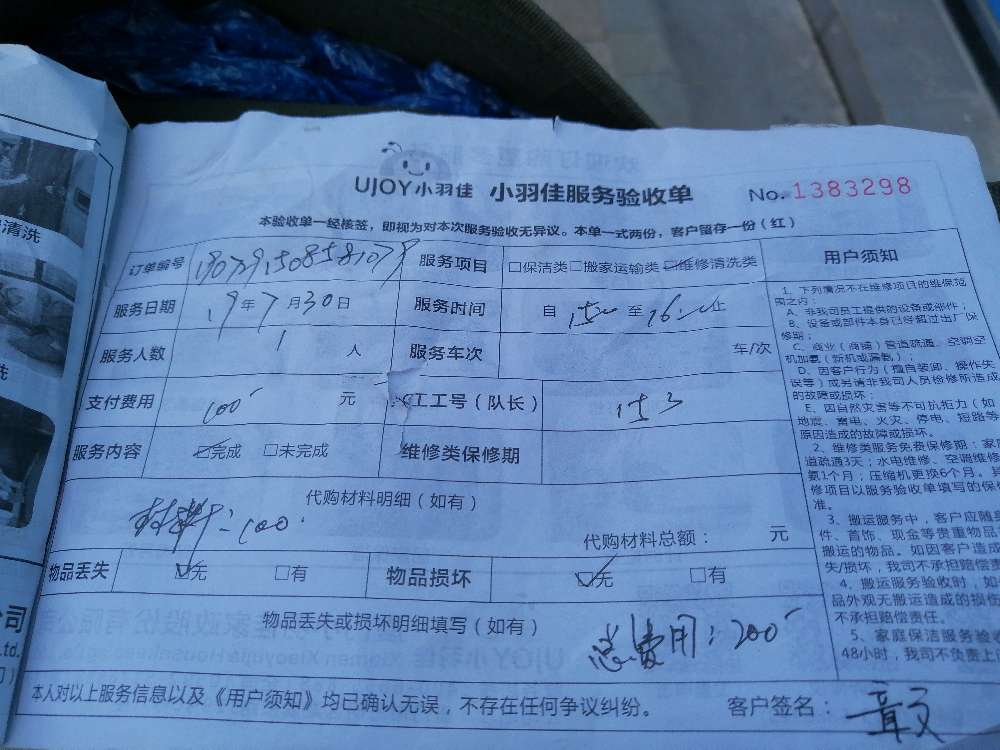 清洗
洗
公司
Ltd.
UJOY小羽佳 小羽佳服务验收单 No. 1383298
本验收单一经核签，即视为对本次服务验收无异议。本单一式两份，客户留存一份（红）
订单编号 服务项目 □保洁类 □搬家运输类 □维修清洗类 用户须知
服务日期 19年7月30日 服务时间 自 至 止
服务人数 1 人 服务车次 车/次
支付费用 100 元 工工号（队长）
服务内容 完成 □未完成 维修类保修期
代购材料明细（如有）
材料：100
代购材料总额： 元
物品丢失 无 □有 物品损坏 无 □有
物品丢失或损坏明细填写（如有）
总费用：200
本人对以上服务信息以及《用户须知》均已确认无误，不存在任何争议纠纷。 客户签名：
1、下列情况不在维修项目的维保范
围之内：
A、非我司员工提供的设备或部件；
B、设备或部件本身已经超过出厂保
修期；
C、商业（商铺）管道疏通、空调空
机加氨（新机或漏氨）；
D、因客户行为（擅自装卸、操作失
误等）或另请非我司人员检修所造成
的故障或损坏；
E、因自然灾害等不可抗拒力（如
地震、雷电、火灾、停电、短路等
原因造成的故障或损坏。
2、维修类服务免费保修期：家庭
道疏通3天；水电维修、空调维修
氨1个月；压缩机更换6个月。其
修项目以服务验收单填写的保修
准。
3、搬运服务中，客户应随身
件、首饰、现金等贵重物品
搬运的物品。如因客户造成
失/损坏，我司不承担赔偿责
4、搬运服务验收时，如
品外观无搬运造成的损伤
不承担赔偿责任。
5、家庭保洁服务验
48小时，我司不负责上